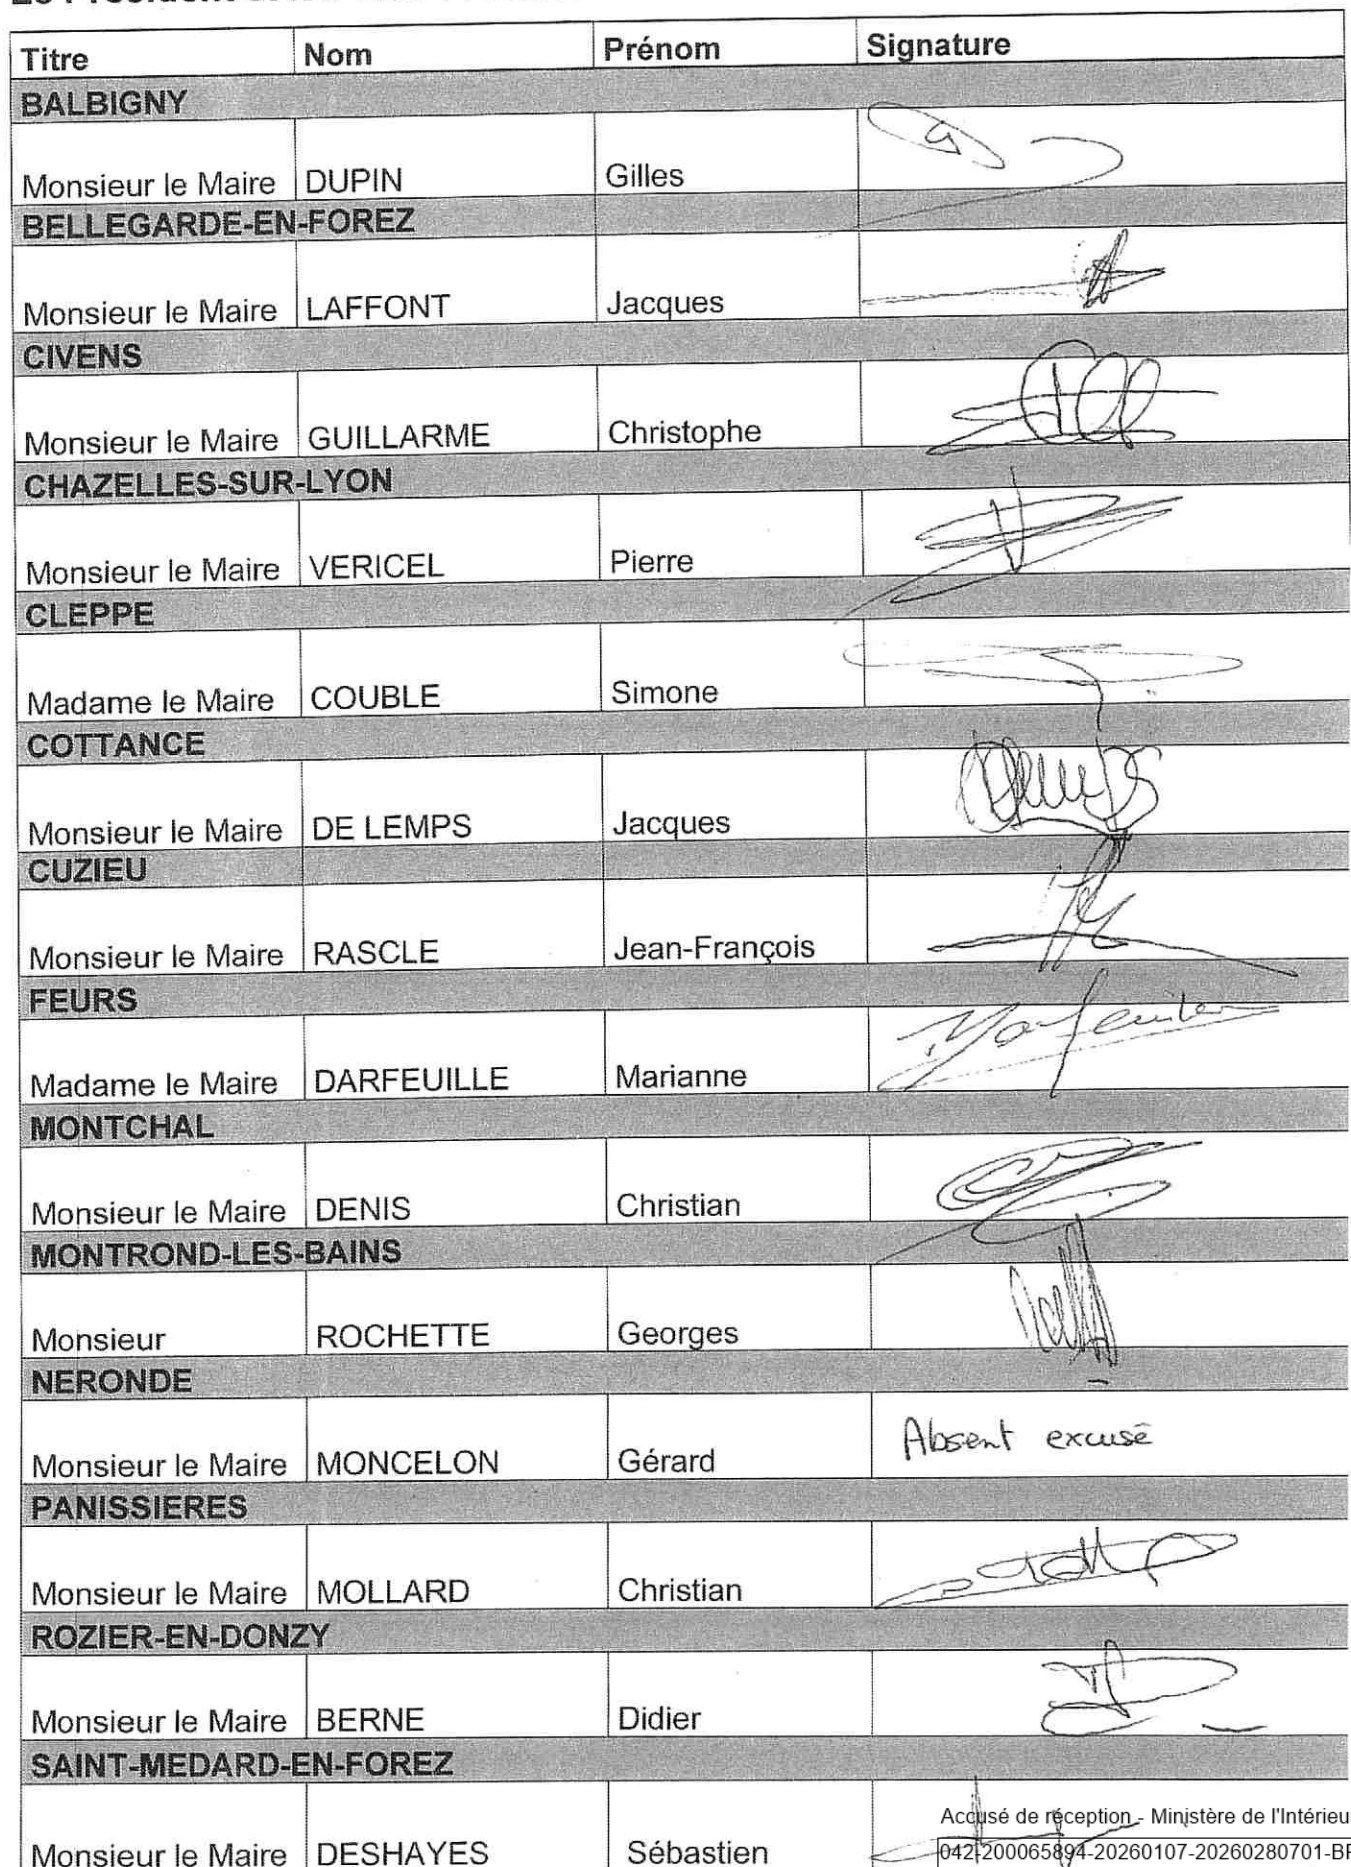 Titre Nom Prénom Signature
BALBIGNY
Monsieur le Maire DUPIN Gilles
BELLEGARDE-EN-FOREZ
Monsieur le Maire LAFFONT Jacques
CIVENS
Monsieur le Maire GUILLARME Christophe
CHAZELLES-SUR-LYON
Monsieur le Maire VERICEL Pierre
CLEPPE
Madame le Maire COUBLE Simone
COTTANCE
Monsieur le Maire DE LEMPS Jacques
CUZIEU
Monsieur le Maire RASCLE Jean-François
FEURS
Madame le Maire DARFEUILLE Marianne
MONTCHAL
Monsieur le Maire DENIS Christian
MONTROND-LES-BAINS
Monsieur ROCHETTE Georges
NERONDE
Monsieur le Maire MONCELON Gérard Absent excusé
PANISSIERES
Monsieur le Maire MOLLARD Christian
ROZIER-EN-DONZY
Monsieur le Maire BERNE Didier
SAINT-MEDARD-EN-FOREZ
Accusé de réception - Ministère de l'Intérieu
Monsieur le Maire DESHAYES Sébastien 042-200065894-20260107-20260280701-BF